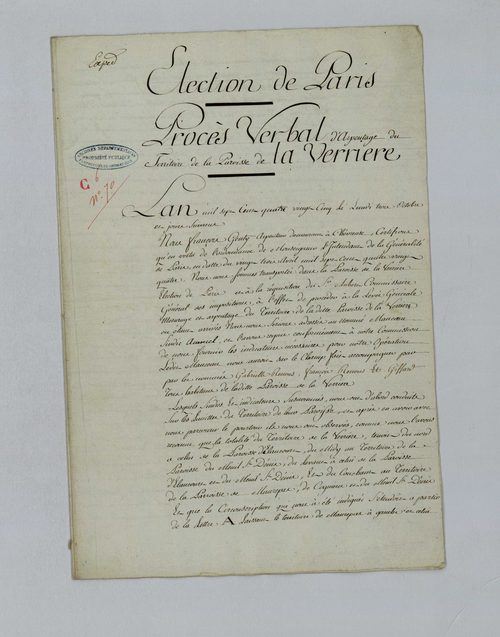 Exped
Election de Paris
Procès Verbal d'Arpentage du
Territoire de la Paroisse de La Verriere
ARCHIVES DEPARTEMENTALES
PROPRIÉTÉ PUBLIQUE
C 6
n° 70
L'an mil sept Cent quatre vingt Cinq le Lundi trois Octobre
et jours suivants
Nous François Gouty Arpenteur demeurant à Certifions
qu'en vertu de l'ordonnance de Monseigneur l'Intendant de la Généralité
de Paris en datte du vingt trois Avril mil sept Cent quatre vingt
quatre Nous nous sommes transportés dans la Paroisse de la Verriere
Election de Paris et à la requisition du Sr Aubert Commissaire
Général des impositions, à l'effet de proceder à la Levée Générale
Mesurage et arpentage du Territoire de ladite Paroisse de la Verriere
ou étant arrivés Nous nous serions adressés au nommé Manceau
Sindic Annuel, et l'avons requis conformément à notre Commission
de nous fournir les indicateurs nécessaires pour notre Opération
Ledit Manceau nous auroit sur le Champ fait accompagner par
par les nommés Gabrielle François et Giffard
Tous habitans de ladite Paroisse de la Verriere
Lesquels Sindic et indicateurs Susnommés, nous ont d'abord conduits
sur les Limites du Territoire de leur Paroisse et après en avoir avec
nous parcouru le pourtour ils nous ont observés comme nous l'avons
reconnu que la totalité du Territoire de la Verriere, tenoit du nord
à celui de la Paroisse d'Elancourt, du Midy au Territoire de la
Paroisse du Mesnil St Denis, du levant à celui de la Paroisse
d'Elancourt et du Mesnil St Denis, Et du Couchant au Territoire
de la Paroisse de Maurepas, de Coignieres et du Mesnil St Denis
Et que la Circonscription qui nous a été indiquée s'étendoit à partir
de la Lettre A laissant le territoire de Maurepas à gauche et celui